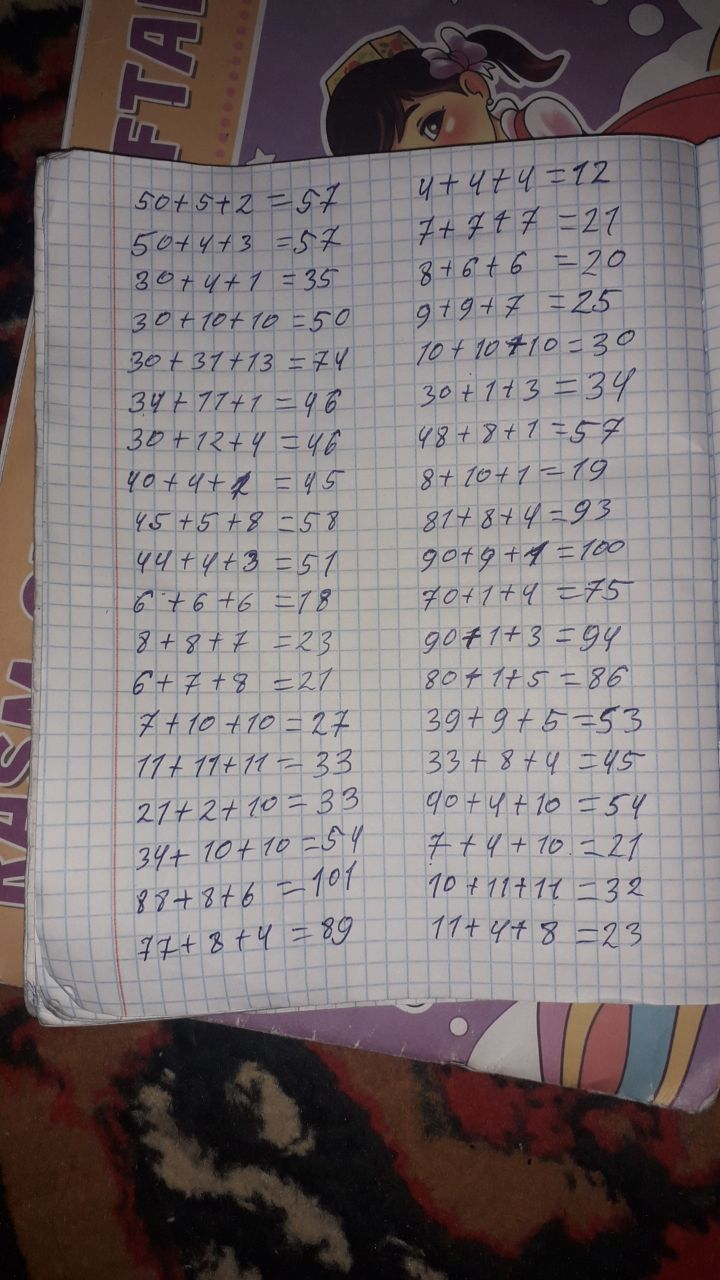 FTAR
RASM
50+5+2=57
50+4+3=57
30+4+1=35
30+10+10=50
30+31+13=74
34+11+1=46
30+12+4=46
40+4+1=45
45+5+8=58
44+4+3=51
6+6+6=18
8+8+7=23
6+7+8=21
7+10+10=27
11+11+11=33
21+2+10=33
34+10+10=54
88+8+6=101
77+8+4=89
4+4+4=12
7+7+7=21
8+6+6=20
9+9+7=25
10+10+10=30
30+1+3=34
48+8+1=57
8+10+1=19
81+8+4=93
90+9+1=100
70+1+4=75
90+1+3=94
80+1+5=86
39+9+5=53
33+8+4=45
40+4+10=54
7+4+10=21
10+11+11=32
11+4+8=23